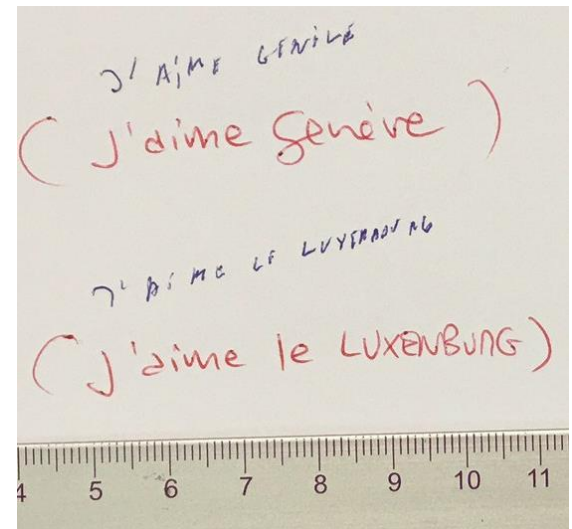 J' AIME GENÈVE
(J'aime Genève)
J' AIME LE LUXEMBOURG
(J'aime le LUXENBURG)
4 5 6 7 8 9 10 11